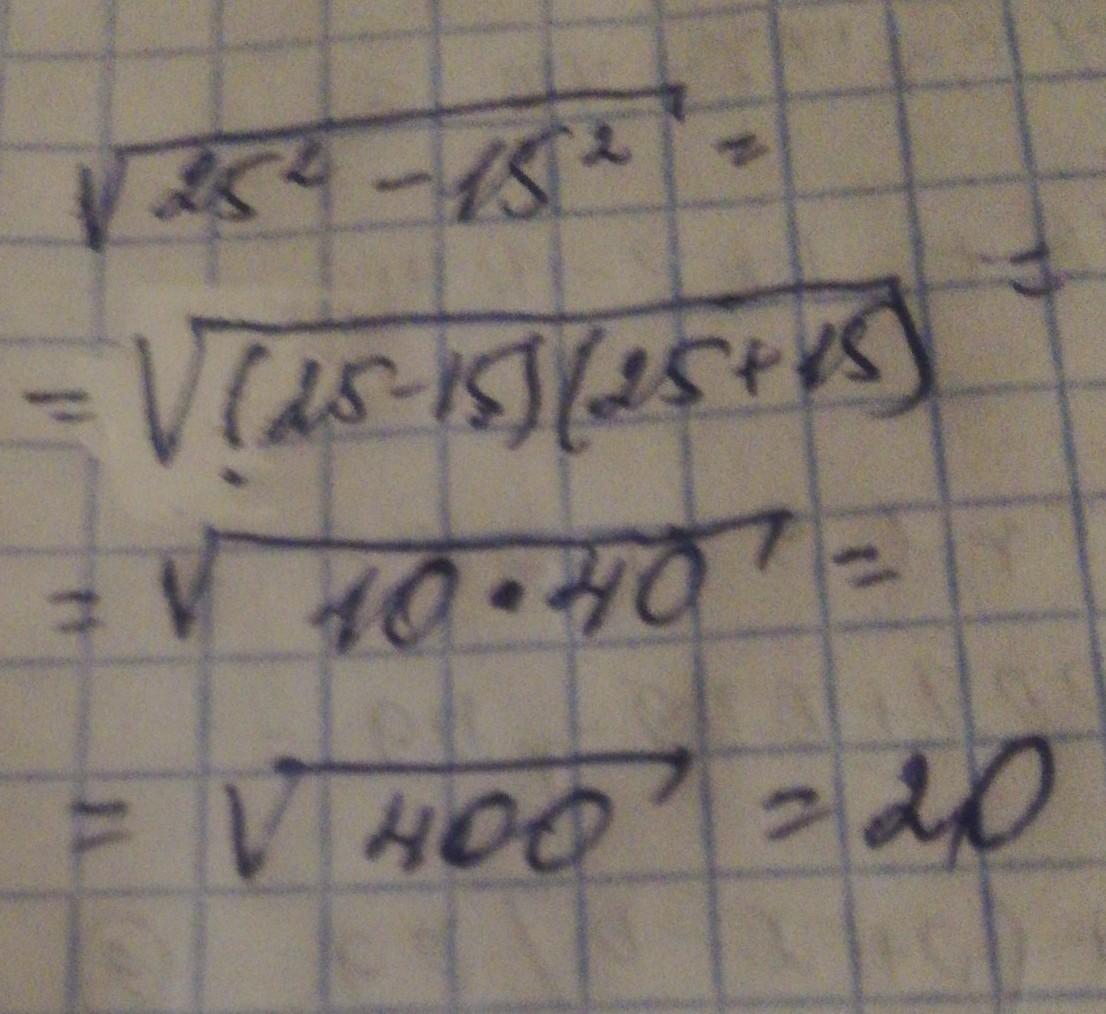 √25² - 15² =
= √(25-15)(25+15) =
= √10 · 40 =
= √400 = 20